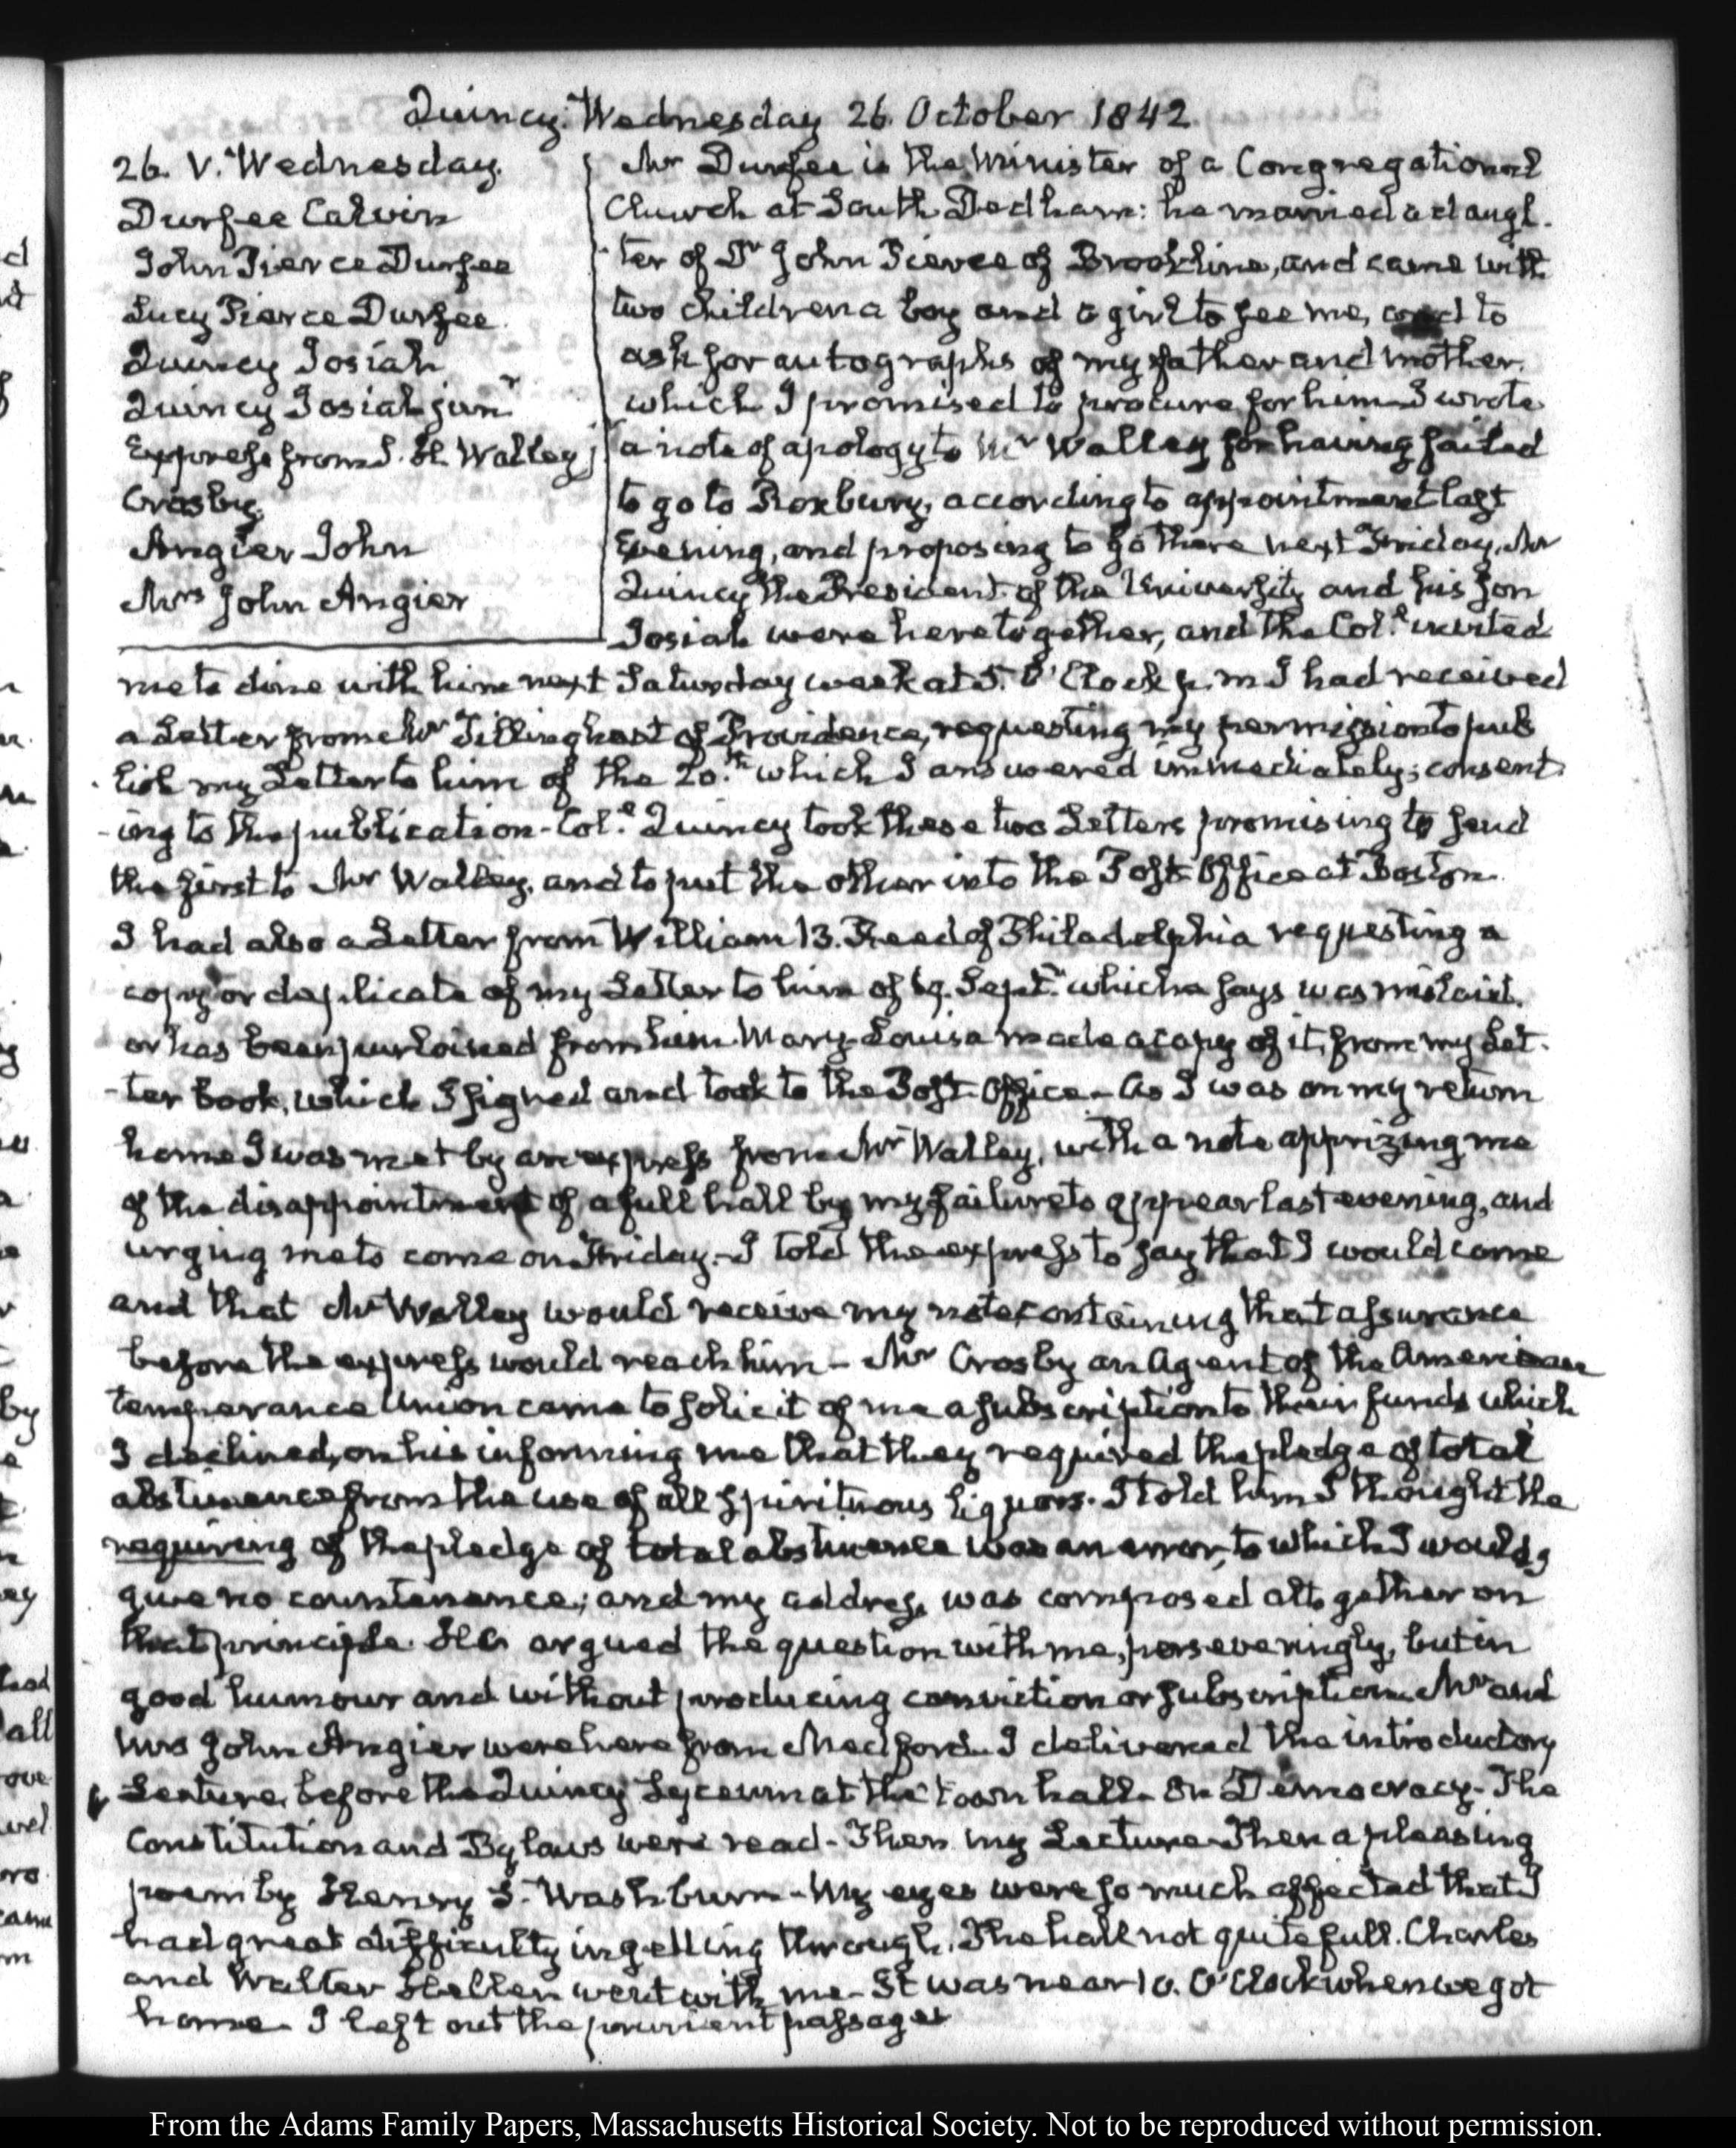 Quincy. Wednesday 26. October 1842.
26. V. Wednesday.
Durfee Calvin
John Pierce Durfee
Lucy Pierce Durfee.
Quincy Josiah
Quincy Josiah junr
Express from S. H. Walley jr
Crosby.
Angier John
Mrs John Angier
Mr Durfee is the Minister of a Congregational
Church at South Dedham: he married a daugh-
ter of Dr John Pierce of Brookline, and came with
two children a boy and a girl to see me, and to
ask for autographs of my father and mother.
which I promised to procure for him. I wrote
a note of apology to Mr Walley for having failed
to go to Roxbury, according to appointment last
Evening, and proposing to go there next Friday. Mr
Quincy the President of the University and his son
Josiah were here together, and the Coll. invited
me to dine with him next Saturday week at 5. O'Clock p.m. I had received
a Letter from Mr Tillinghast of Providence, requesting my permission to pub
lish my Letter to him of the 20.th which I answered immediately; consent-
-ing to the publication - Coll. Quincy took these two Letters promising to send
the first to Mr Walley, and to put the other into the Post-Office at Boston.
I had also a Letter from William B. Reed of Philadelphia requesting a
copy or duplicate of my Letter to him of 19. Septr. which he says was mislaid.
or has been purloined from him. Mary-Louisa made a copy of it, from my Let-
-ter book, which I signed and took to the Post-Office - As I was on my return
home I was met by an express from Mr Walley, with a note apprizing me
of the disappointment of a full hall by my failure to appear last evening, and
urging me to come on Friday. - I told the express to say that I would come
and that Mr Walley would receive my note containing that assurance
before the express would reach him - Mr Crosby an Agent of the American
temperance Union came to solicit of me a subscription to their funds which
I declined, on his informing me that they required the pledge of total
abstinence from the use of all spirituous liquors. I told him I thought the
requiring of the pledge of total abstinence was an error, to which I would
give no countenance; and my address was composed altogether on
that principle. He argued the question with me, perseveringly, but in
good humour and without producing conviction or subscription. Mr and
Mrs John Angier were here from Medford. I delivered the introductory
Lecture before the Quincy Lyceum at the town hall - On Democracy - The
Constitution and By laws were read - Then my Lecture - Then a pleasing
poem by Henry S. Washburn - My eyes were so much affected that I
had great difficulty in getting through. The hall not quite full. Charles
and Walter Hellen went with me - It was near 10. O'Clock when we got
home. I left out the prurient passages
d
by
all
From the Adams Family Papers, Massachusetts Historical Society. Not to be reproduced without permission.